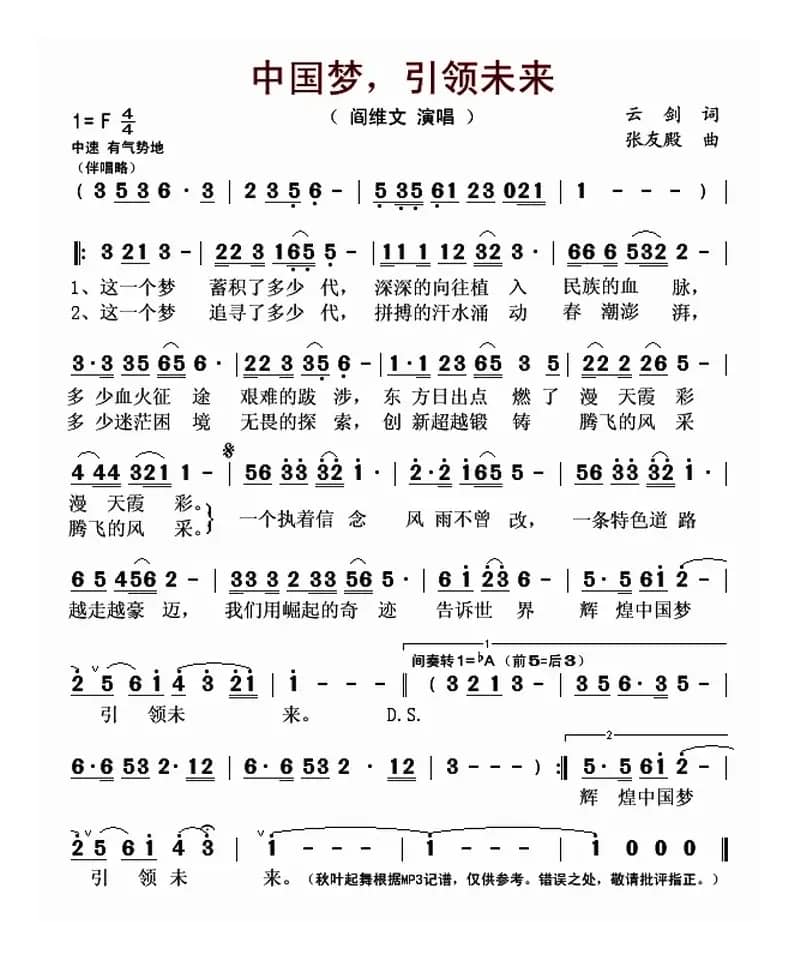 中国梦，引领未来
1=F 4/4
（ 阎维文 演唱 ）
云 剑 词
张友殿 曲
中速 有气势地
（伴唱略）
( 3 5 3 6 · 3 | 2 3 5 6 - | 5 35 61 23 021 | 1 - - - ) |
‖: 3 21 3 - | 22 3 165 5 - | 11 1 12 32 3 · | 66 6 532 2 - |
1、这一个梦 蓄积了多少 代， 深深的向往植 入 民族的血 脉，
2、这一个梦 追寻了多少 代， 拼搏的汗水涌 动 春 潮澎 湃，
3·3 35 65 6 · | 22 3 35 6 - | 1·1 23 65 3 5 | 22 2 26 5 - |
多 少血火征 途 艰难的跋 涉， 东 方日出点 燃 了 漫 天霞 彩
多 少迷茫困 境 无畏的探 索， 创 新超越锻 铸 腾飞的风 采
4 44 321 1 - | 56 33 32 1 · | 2·2 165 5 - | 56 33 32 1 · |
漫 天霞 彩。
腾飞的风 采。
一个执着信 念 风 雨不曾 改， 一条特色道 路
6 5 456 2 - | 33 3 2 33 56 5 · | 6 1 23 6 - | 5· 5 61 2 - |
越走越豪 迈， 我们用崛起的奇 迹 告诉世 界 辉 煌中国梦
1
间奏转1=♭A（前5=后3）
2 ∨ 5 61 4 3 21 | 1 - - - ‖ ( 3 21 3 - | 3 5 6· 3 5 - |
引 领未 来。 D.S.
2
6· 6 53 2· 12 | 6· 6 53 2 · 12 | 3 - - - ) :‖ 5· 5 61 2 - |
辉 煌中国梦
2 ∨ 5 6 1 4 3 | ∨ 1 - - - | 1 - - - | 1 0 0 0 ‖
引 领 未 来。（秋叶起舞根据MP3记谱，仅供参考。错误之处，敬请批评指正。）